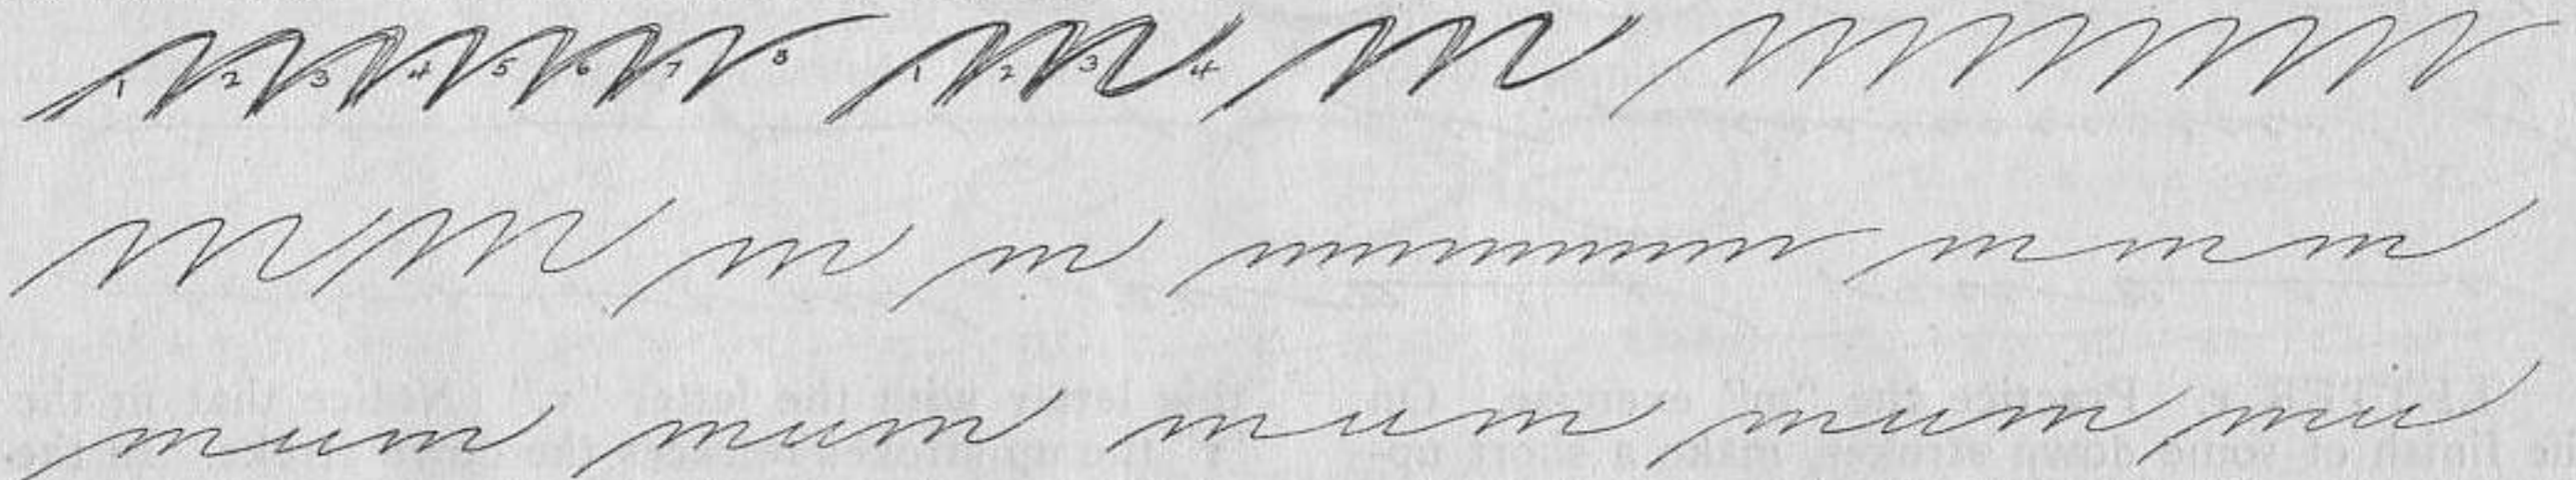 1 2 3 4 5 6 7 8 1 2 3 4 m
m m m m mmm
mum mum mum mum